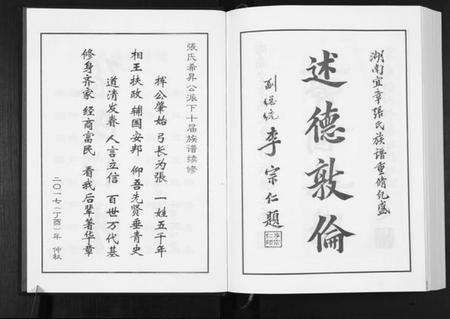 湖南宜章張氏族譜重脩紀盛
述德敦倫
副總統 李宗仁題
張氏希昇公派下十届族谱续修
挥公肇始 弓长为張 一姓五千年
相王扶政 辅国安邦 仰吾先贤垂青史
道清发春 人言立信 百世万代基
修身齐家 经商富民 看我后辈著华章
二〇一七(丁酉)年 仲秋